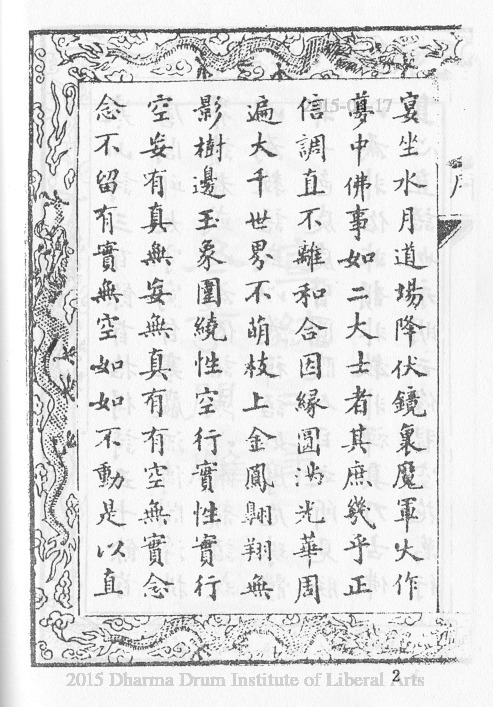 宴坐水月道場降伏鏡裏魔軍大作
夢中佛事如二大士者其庶幾乎正
信調直不離和合因緣圓滿光華周
遍大千世界不萌枝上金鳳翱翔無
影樹邊玉象圍繞性空行實性實行
空妄有真無妄無真有有空無實念
念不留有實無空如如不動是以直
2
2015 Dharma Drum Institute of Liberal Arts